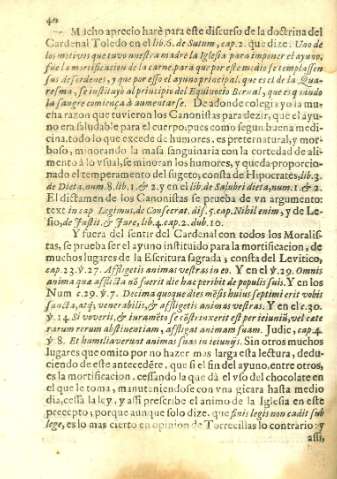 40
Mucho aprecio harè para este discurso de la doctrina del
Cardenal Toledo en el lib. 6. de Summ, cap. 2. que dize: Vno de
los motivos que tuvo nuestra madre la Iglesia para imponer el ayuno,
fue la mortificacion de la carne, para que por este medio se templassen
sus desordenes, y que por esso el ayuno principal, que es el de la Quare-
sma, se instituyò al principio del Equinocio Bernal, que es quando
la sangre comiença à aumentarse. De adonde colegia yo la mu-
cha razon que tuvieron los Canonistas para dezir, que el ayu-
no era saludable para el cuerpo: pues como segun buena medi-
cina, todo lo que excede de humores, es preternatural, y mor-
boso, minorando la massa sanguinaria con la cortedad de ali-
mento à lo vsual, se minoran los humores, y queda proporcio-
nado el temperamento del sugeto, consta de Hipocrates, lib. 3.
de Dieta, num. 8. lib. 1. & 2. y en el lib. de Salubri dieta, num. 1. & 2.
El dictamen de los Canonistas se prueba de vn argumento:
text in cap. Legimus, de Consecrat. dis. 5. cap. Nihil enim, y de Le-
sio, de Justit. & Jure, lib. 4. cap. 2. dub. 10.
Y fuera del sentir del Cardenal con todos los Moralis-
tas, se prueba ser el ayuno instituido para la mortificacion, de
muchos lugares de la Escritura sagrada, consta del Levitico,
cap. 23. ỳ. 27. Affligetis animas vestras in eo. Y en el ỳ. 29. Omnis
anima quæ afflicta nõ fuerit die hac peribit de populis suis. Y en los
Num c. 29. ỳ. 7. Decima quoque dies mẽsis huius septimi erit vobis
sancta, atq; venerabilis, & affligetis animas vestras. Y en el c. 30.
ỳ. 14. Si voverit, & iuramẽto se cõstrinxerit vt per ieiuniũ, vel cæte
rarum rerum abstinentiam, affligat animam suam. Judic, cap. 4
ỳ 8. Et humiliaverunt animas suas in ieiunijs. Sin otros muchos
lugares que omito por no hazer mas larga esta lectura, dedu-
ciendo de este antecedẽte, que si el fin del ayuno, entre otros,
es la mortificacion, cessando la que dà el vso del chocolate en
el que le toma, manuteniendose con vna gicara hasta medio
dia, cessa la ley, y assi prescribe el animo de la Iglesia en este
precepto; porque aunque solo dize. que finis legis non cadit sub
lege, es lo mas cierto en opinion de Torrecillas lo contrario: y
assi,